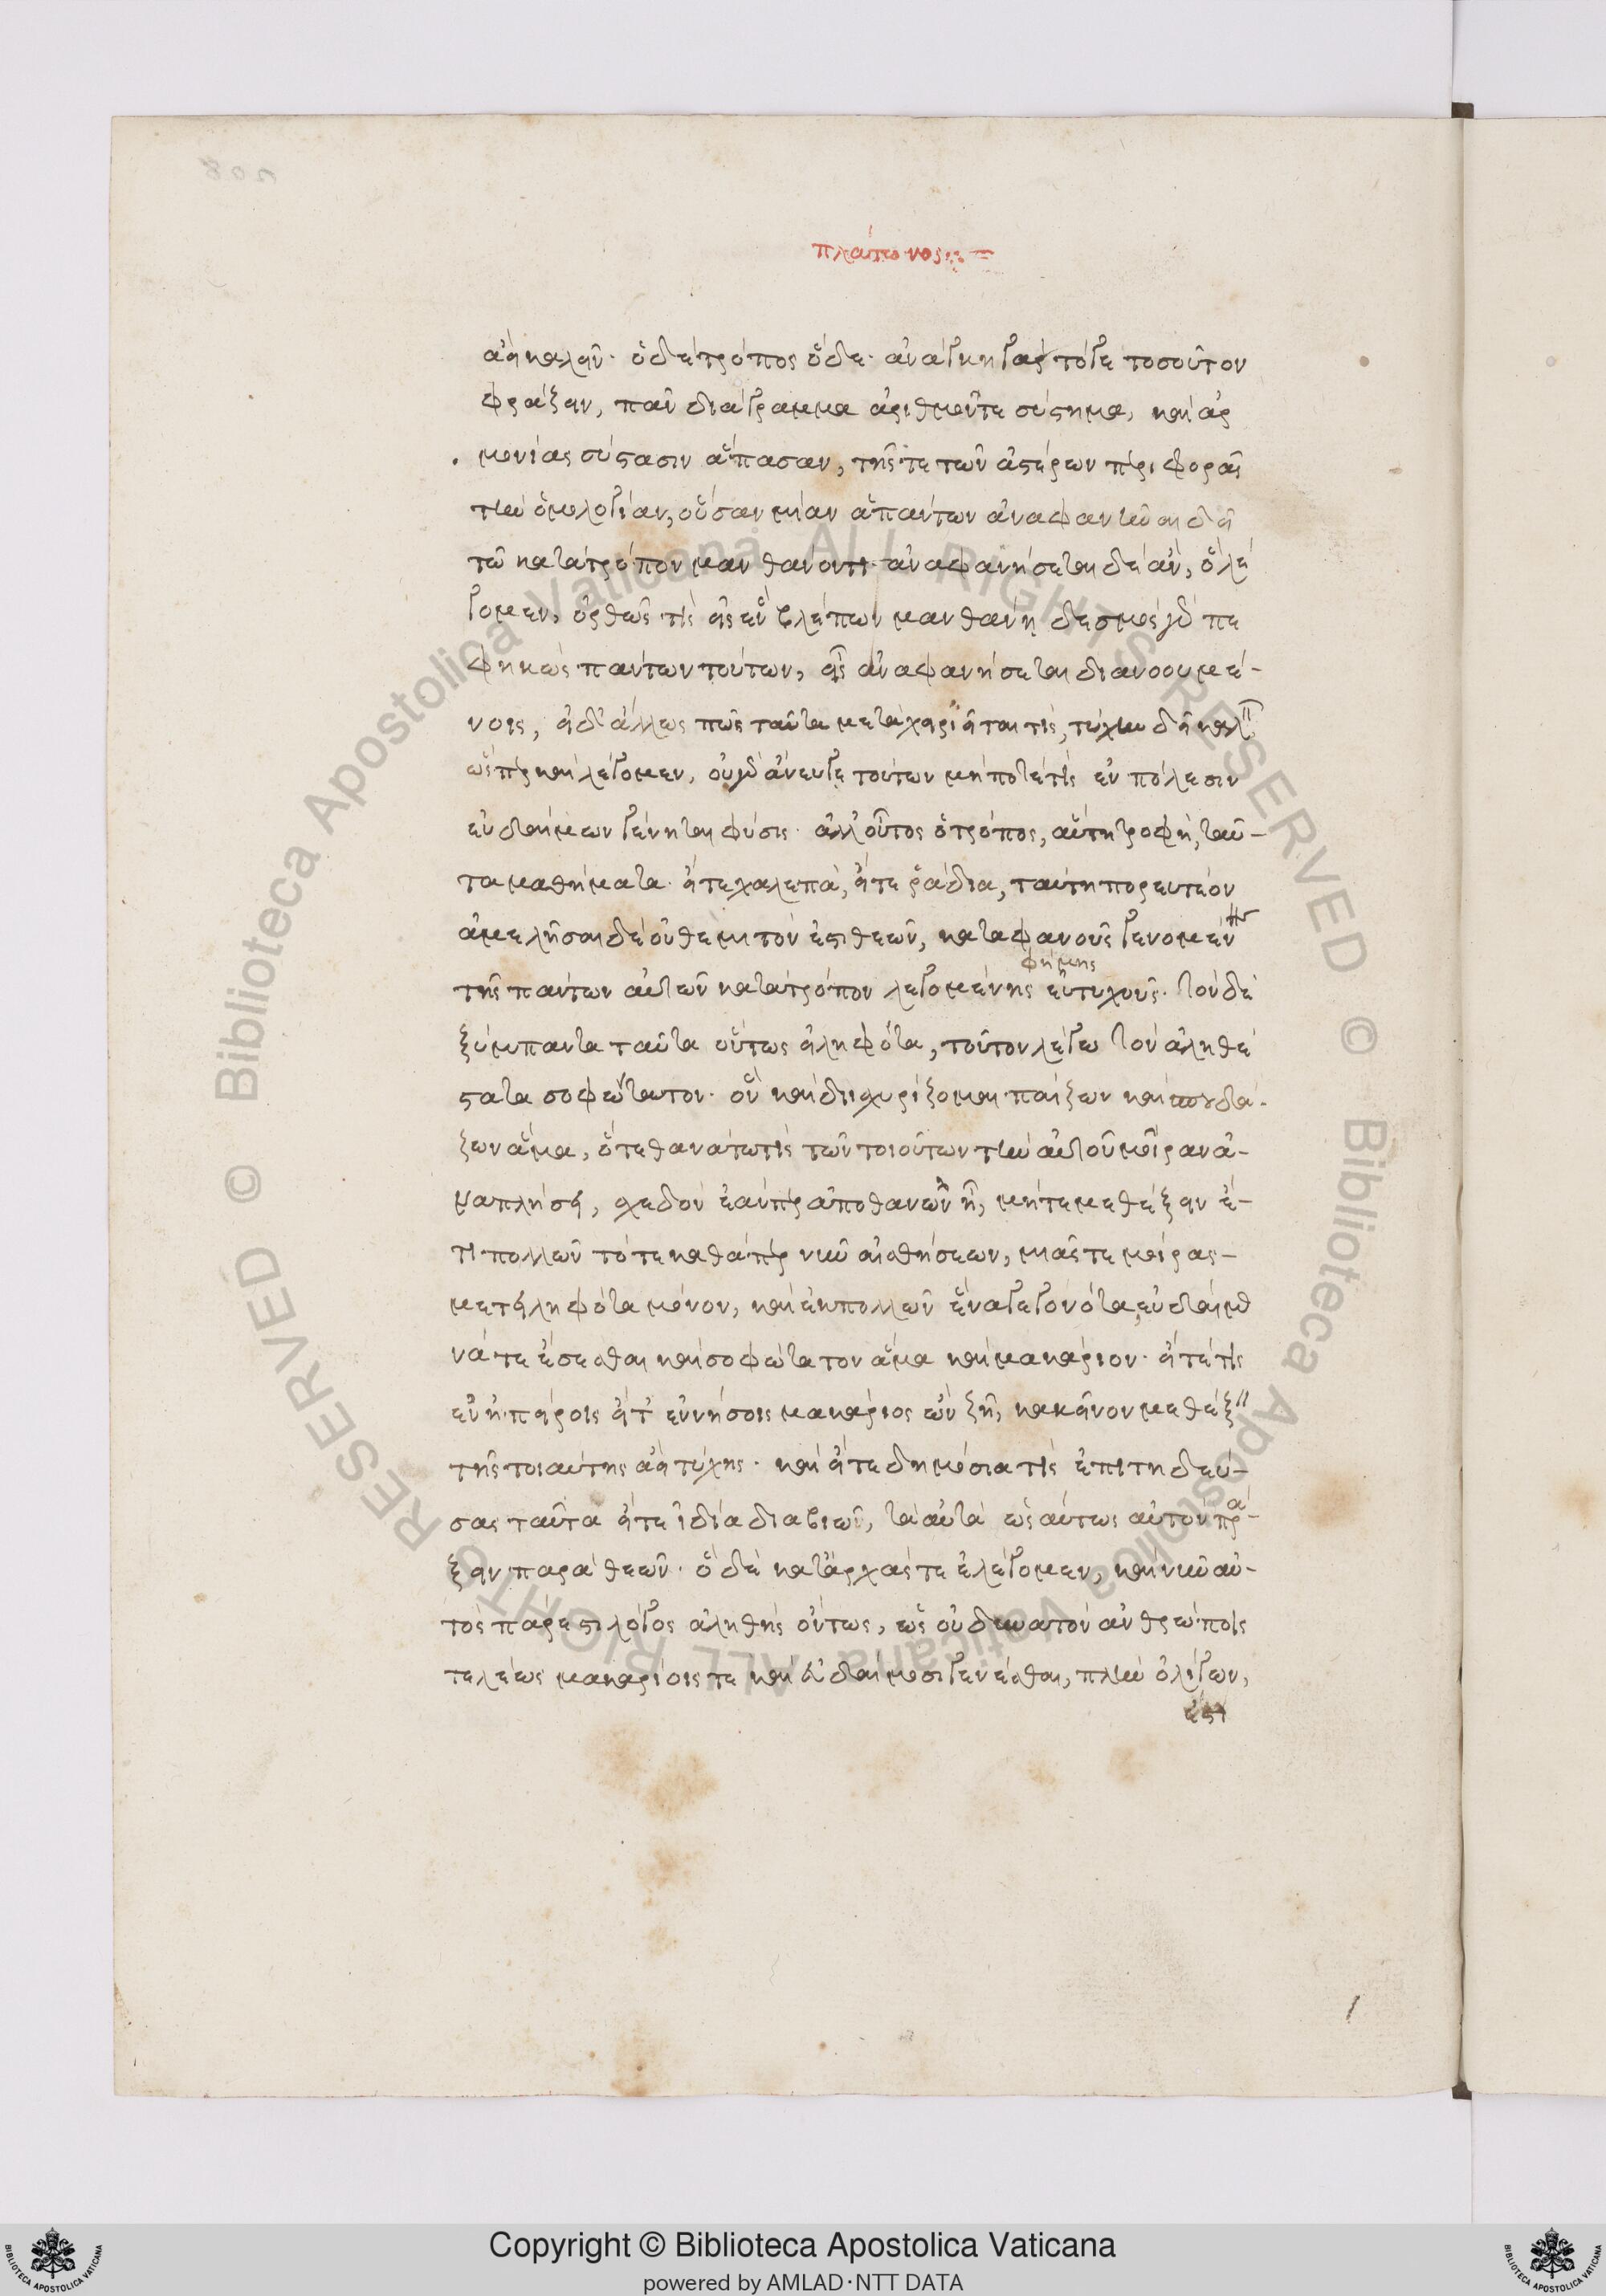 πλάτωνος
ἀεὶ καλεῖν· ὁ δὲ τρόπος ὅδε· ἀνάγκη γὰρ τό γε τοσοῦτον
φράζειν, πᾶν διάγραμμα ἀριθμοῦ τε σύστημα, καὶ ἁρ
μονίας σύστασιν ἅπασαν, τῆς τε τῶν ἀστέρων περιφορᾶς
τὴν ὁμολογίαν, οὖσαν μίαν ἁπάντων ἀναφανῆναι δεῖ
τῶ κατὰ τρόπον μανθάνοντι· ἀναφανήσεται δὲ ἂν, ὃ λέ
γομεν, ὀρθῶς τις εἰς ἓν βλέπων μανθάνη δεσμὸς γὰρ πε
φηκὼς πάντων τούτων, εἷς ἀναφανήσεται διανοουμέ-
νοις, εἰ δ' ἄλλως πως ταῦτα μεταχειριεῖταί τις, τύχην δεῖ καλεῖν
ὥσπερ καὶ λέγομεν, οὐ γὰρ ἄνευ γε τούτων μήποτέ τις ἐν πόλεσιν
εὐδαίμων γένηται φύσις· ἀλλ' οὗτος ὁ τρόπος, αὕτη τροφὴ, ταῦ-
τα μαθήματα· εἴτε χαλεπὰ, εἴτε ῥάδια, ταύτη πορευτέον
ἀμελῆσαι δὲ οὐ θεμιτόν ἐστι θεῶν, καταφανοῦς γενομένης
φήμης
τῆς πάντων αὐτῶν κατὰ τρόπον λεγομένης εὐτυχοῦς· τὸν δὲ
ξύμπαντα ταῦτα οὕτως εἰληφότα, τοῦτον λέγω τὸν ἀληθέ
στατα σοφώτατον· ὃν καὶ διισχυρίζομαι παίζων καὶ σπουδά-
ζων ἅμα, ὅτε θανάτω τις τῶν τοιούτων τὴν αὐτοῦ μοῖραν ἀ-
ναπλήσει, σχεδὸν ἐάνπερ ἀποθανὼν ἦ, μήτε μεθέξειν ἔ-
τι πολλῶν τότε καθάπερ νῦν αἰσθήσεων, μιᾶς τε μοίρας-
μετειληφότα μόνον, καὶ ἐκ πολλῶν ἕνα γεγονότα, εὐδαίμο
νά τε ἔσεσθαι καὶ σοφώτατον ἅμα καὶ μακάριον· εἴτε τις
ἐν ἠπείροις εἴτ' ἐν νήσοις μακάριος ὢν ζῆ, κἀκεῖνον μεθέξειν
τῆς τοιαύτης ἀεὶ τύχης· καὶ εἴτε δημόσιά τις ἐπιτηδεύ-
σας ταῦτα εἴτε ἰδία διαβιῶ, τὰ αὐτὰ ὡσαύτως αὐτὸν πρά-
ξειν παρὰ θεῶν· ὃ δὲ κατ' ἀρχάς τε ἐλέγομεν, καὶ νῦν αὑ-
τὸς πάρεστι λόγος ἀληθὴς ὄντως, ὡς οὐ δυνατὸν ἀνθρώποις
τελέως μακαρίοις τε καὶ εὐδαίμοσι γενέσθαι, πλὴν ὀλίγων,
ἔστι